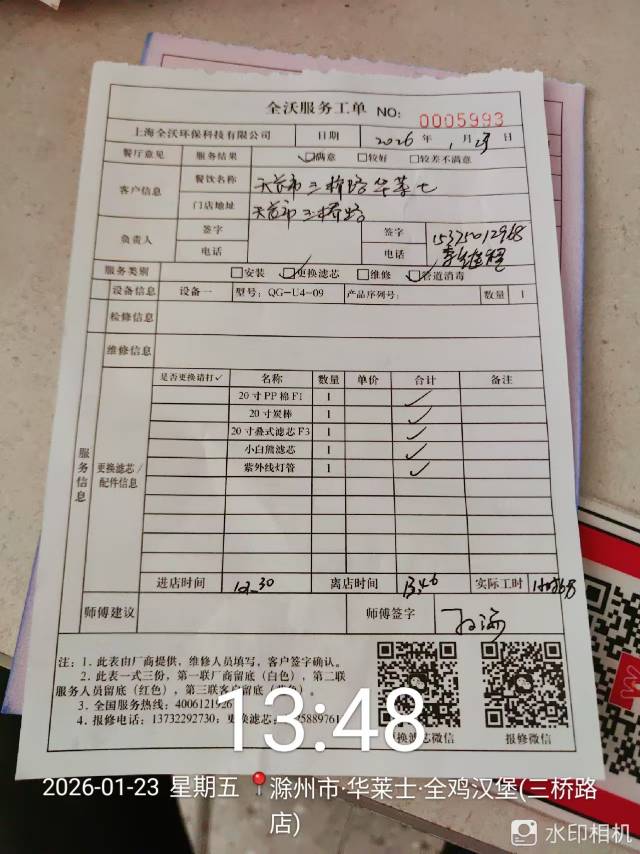 全沃服务工单 NO: 0005993
上海全沃环保科技有限公司 日期 2026 年 1 月 23 日
餐厅意见 服务结果 ☑满意 □较好 □较差不满意
客户信息 餐饮名称 天长市三桥路华莱士
门店地址 天长市三桥路
负责人 签字 签字 15375012968
电话 电话
服务类别 □安装 ☑更换滤芯 □维修 ☑管道消毒
设备信息 设备一 型号: QG-U4-09 产品序列号: 数量 1
检修信息
维修信息
服务信息
更换滤芯/配件信息
是否更换请打✓ 名称 数量 单价 合计 备注
20寸PP棉F1 1 ✓
20寸炭棒 1 ✓
20寸叠式滤芯F3 1 ✓
小白熊滤芯 1 ✓
紫外线灯管 1 ✓
进店时间 12_30 离店时间 13:46 实际工时
师傅建议 师傅签字
注: 1. 此表由厂商提供, 维修人员填写, 客户签字确认。
2. 此表一式三份, 第一联厂商留底(白色), 第二联
服务人员留底(红色), 第三联客户留底
3. 全国服务热线: 4006121926
4. 报修电话: 13732292730; 更换滤芯
换滤芯微信 报修微信
13:48
2026-01-23 星期五 滁州市·华莱士·全鸡汉堡(三桥路
店)
水印相机